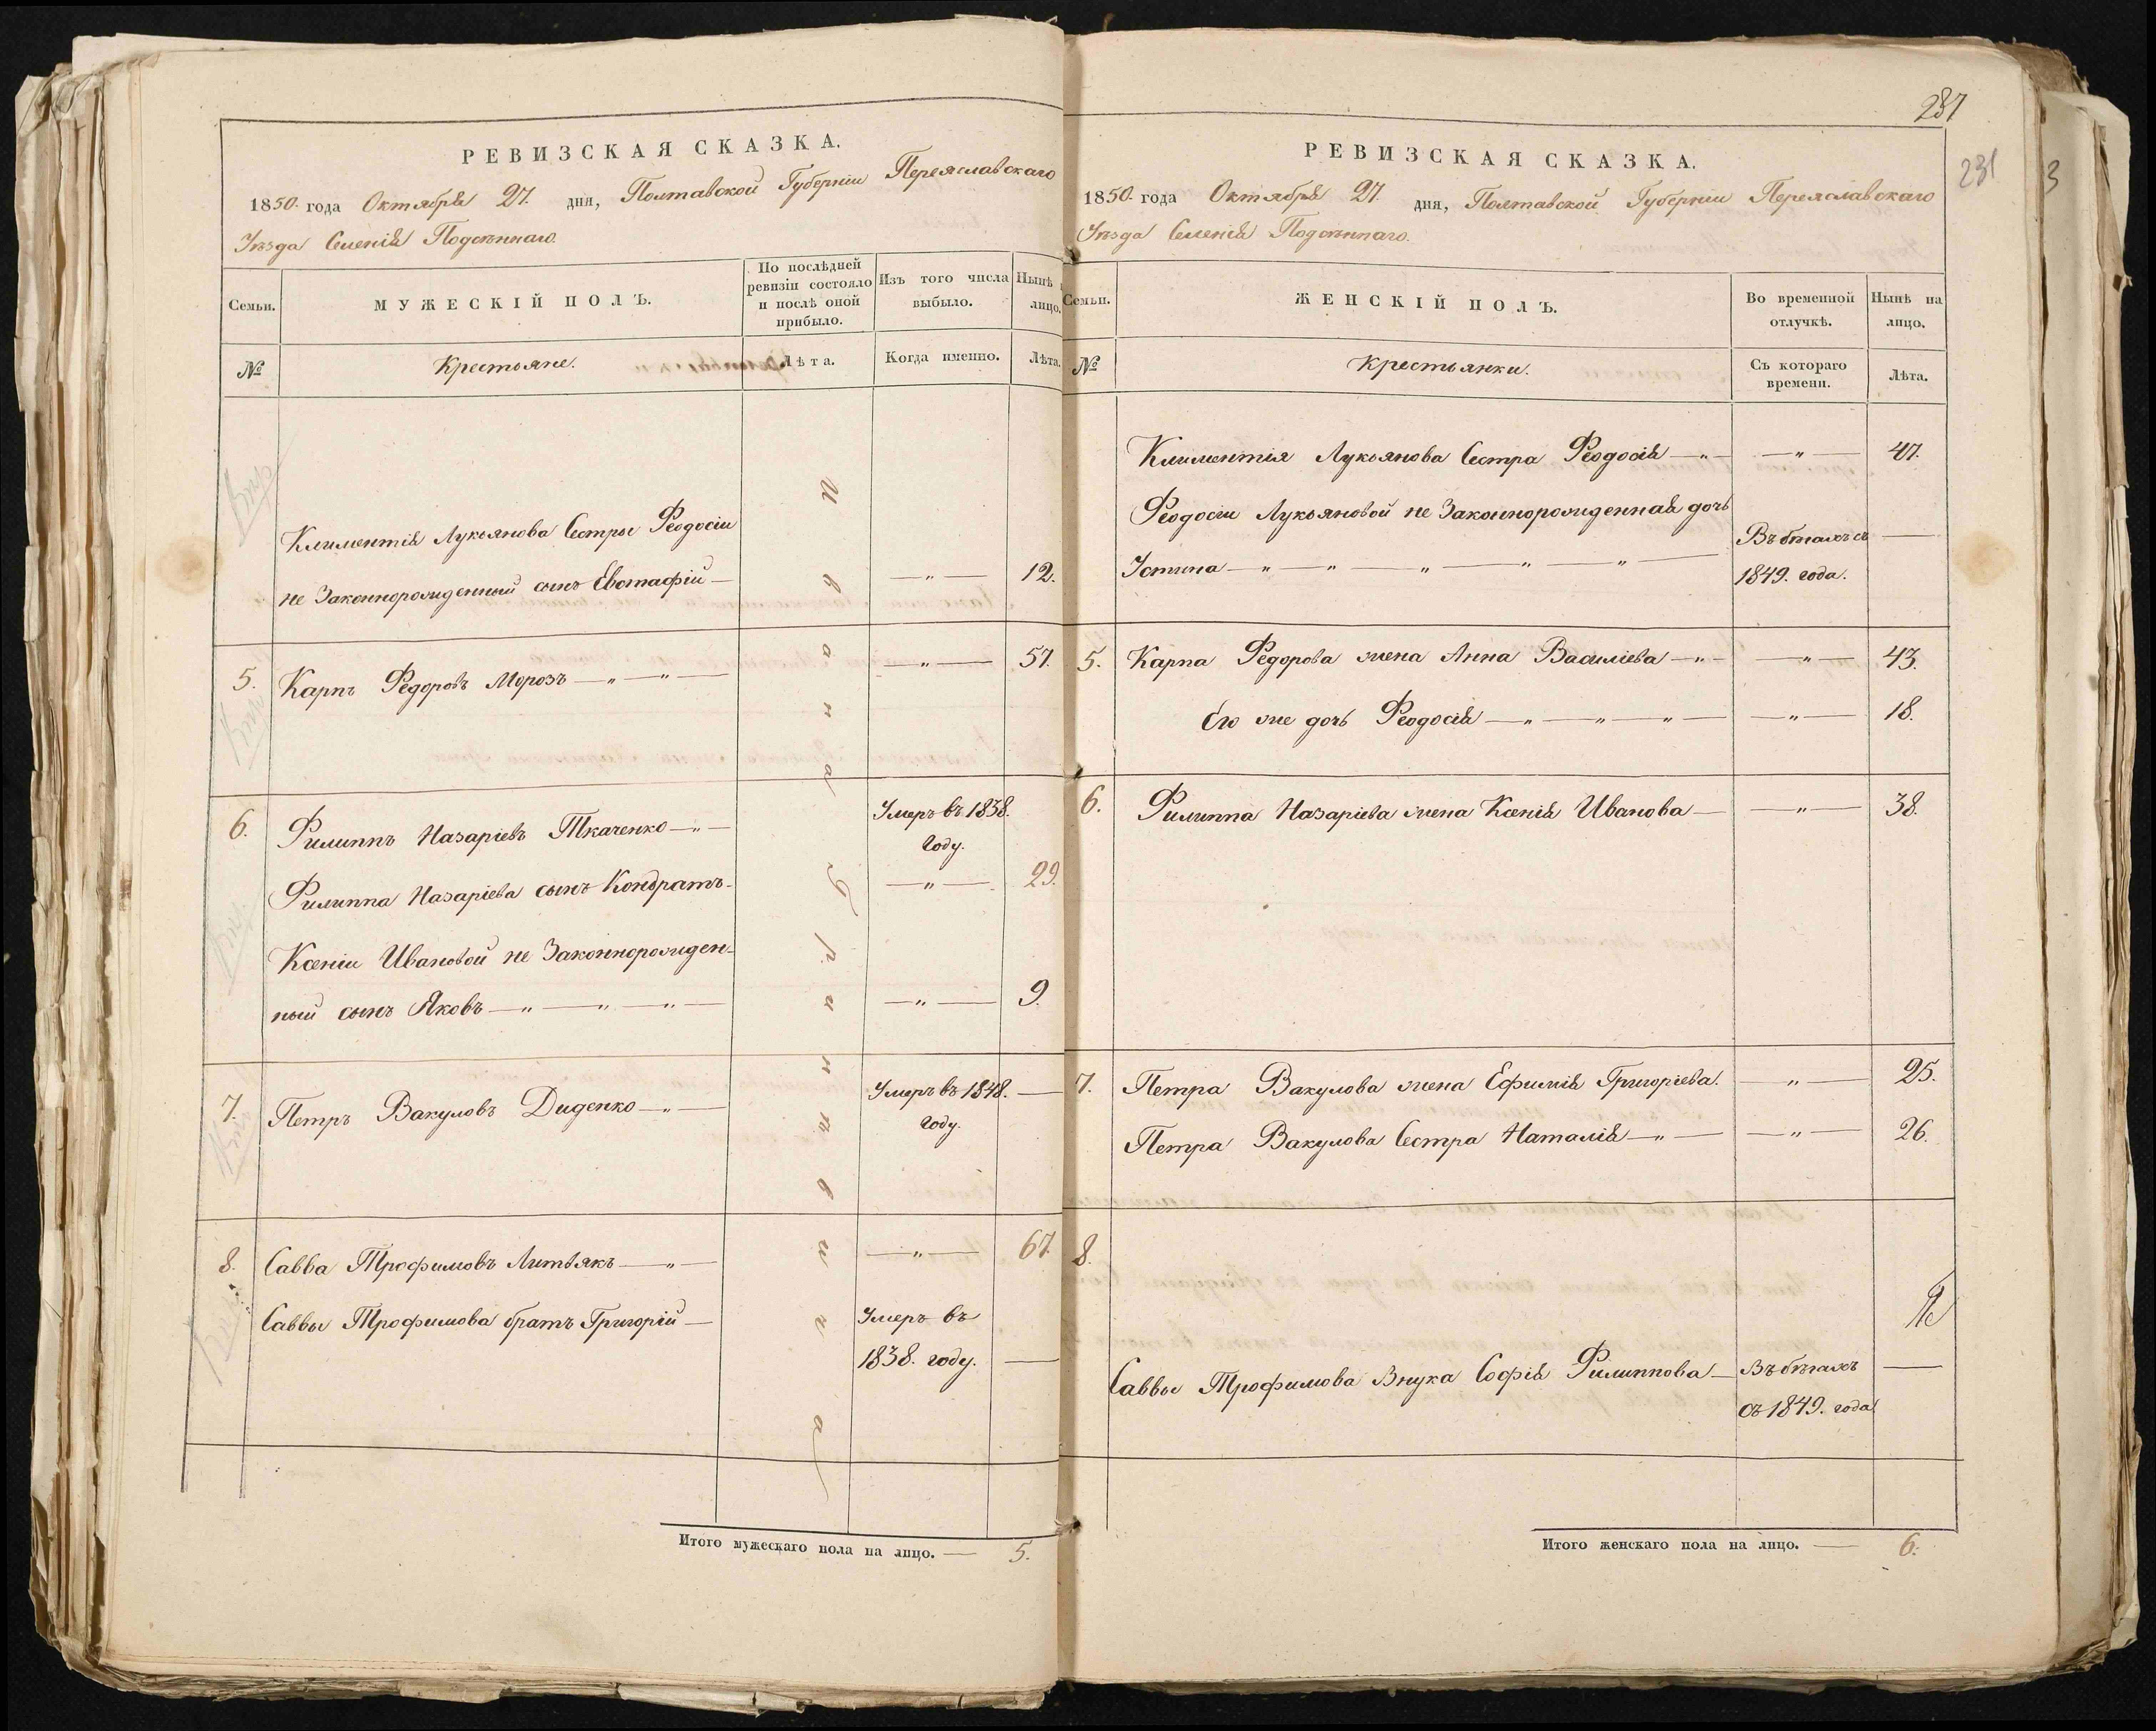 РЕВИЗСКАЯ СКАЗКА.
1850. года Октября 27. дня, Полтавской Губерніи Переяславскаго
Уѣзда Селенія Подсѣннаго.
Семьи.
МУЖЕСКІЙ ПОЛЪ.
По послѣдней ревизіи состояло и послѣ оной прибыло.
Изъ того числа выбыло.
Нынѣ лицо.
№
Крестьяне.
Лѣта.
Когда именно.
Лѣта.
Климентія Лукьянова Сестры Феодосіи
не Законнорожденный сынъ Евстафій — — " — 12.
5. Карпъ Федоровъ Морозъ — " — " — — " — 57.
6. Филиппъ Назаріевъ Ткаченко — " — Умеръ въ 1838.
году.
Филиппа Назаріева сынъ Кондратъ - — " — 29.
Ксеніи Ивановой не Законнорожден-
ный сынъ Яковъ — " — " — " — — " — 9.
7. Петръ Вакуловъ Диденко — " — Умеръ въ 1848. —
году.
8. Савва Трофимовъ Литвякъ — " — — " — 67.
Саввы Трофимова братъ Григорій — Умеръ въ
1838. году. —
Итого мужескаго пола на лицо. — 5.
237
231
3
РЕВИЗСКАЯ СКАЗКА.
1850. года Октября 27. дня, Полтавской Губерніи Переяславскаго
Уѣзда Селенія Подсѣннаго.
Семьи.
ЖЕНСКІЙ ПОЛЪ.
Во временной отлучкѣ.
Нынѣ на лицо.
№
Крестьянки.
Съ котораго времени.
Лѣта.
Климентія Лукьянова Сестра Феодосія — " — — " — 47.
Феодосіи Лукьяновой не Законнорожденная дочь
Устина — " — " — " — " — " — Въ бѣгахъ съ —
1849. года.
5. Карпа Федорова жена Анна Василіева — " — — " — 43.
Его же дочь Феодосія — " — " — " — — " — 18.
6. Филиппа Назаріева жена Ксенія Иванова — — " — 38.
7. Петра Вакулова жена Ефимія Григоріева. — " — 25.
Петра Вакулова Сестра Наталія — " — — " — 26.
8.
Саввы Трофимова Внука Софія Филиппова — Въ бѣгахъ —
съ 1849. года
Итого женскаго пола на лицо. — 6.